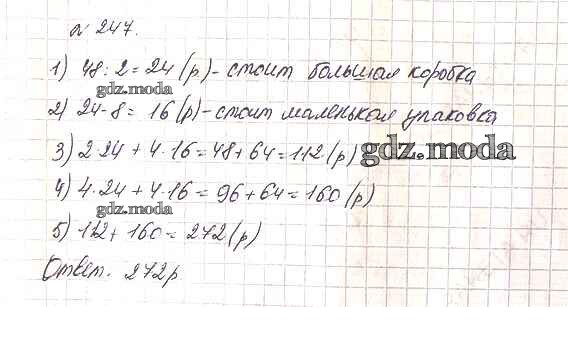 № 247.
1) 48 : 2 = 24 (р) - стоит большая коробка
gdz.moda
2) 24 - 8 = 16 (р) - стоит маленькая упаковка
3) 2·24 + 4·16 = 48 + 64 = 112 (р)
gdz.moda
4) 4·24 + 4·16 = 96 + 64 = 160 (р)
gdz.moda
5) 112 + 160 = 272 (р)
Ответ. 272р